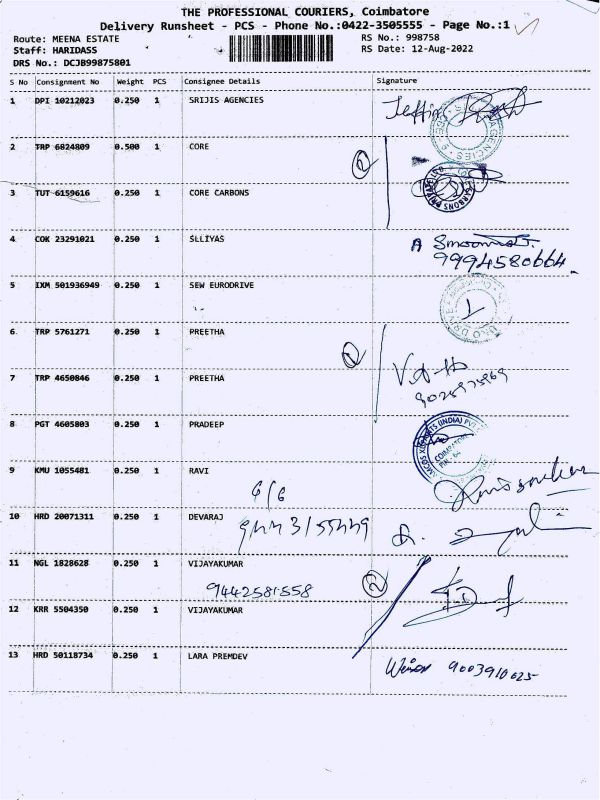 THE PROFESSIONAL COURIERS, Coimbatore
Delivery Runsheet - PCS - Phone No.:0422-3505555 - Page No.:1
Route: MEENA ESTATE RS No.: 998758
Staff: HARIDASS RS Date: 12-Aug-2022
DRS No.: DCJB99875801
S No Consignment No Weight PCS Consignee Details Signature
1 DPI 10212023 0.250 1 SRIJIS AGENCIES
2 TRP 6824809 0.500 1 CORE
2
3 TUT 6159616 0.250 1 CORE CARBONS
4 COK 23291021 0.250 1 SLLIYAS
9994580664
5 IXM 501936949 0.250 1 SEW EURODRIVE
6 TRP 5761271 0.250 1 PREETHA
2
7 TRP 4650846 0.250 1 PREETHA
8 PGT 4605803 0.250 1 PRADEEP
9 KMU 1055481 0.250 1 RAVI
10 HRD 20071311 0.250 1 DEVARAJ
11 NGL 1828628 0.250 1 VIJAYAKUMAR
9442581558
2
12 KRR 5504350 0.250 1 VIJAYAKUMAR
13 HRD 50118734 0.250 1 LARA PREMDEV
9003910025